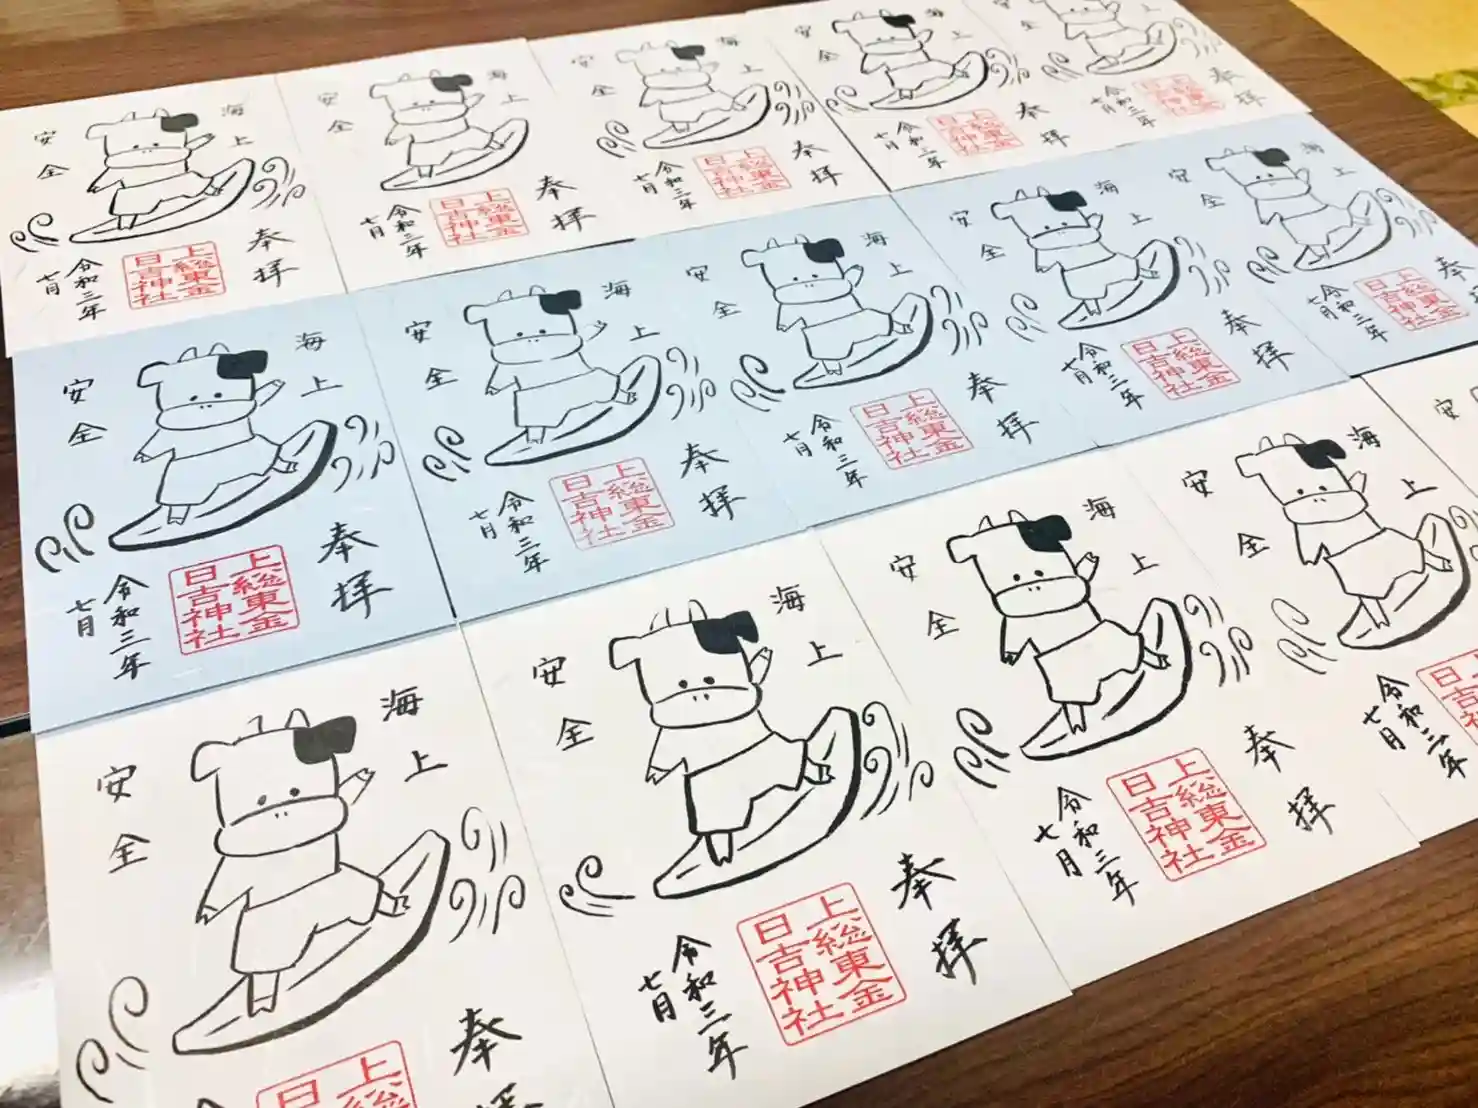 海上
安全
奉拝
上総東金
日吉神社
令和三年
七月
海上
安全
奉拝
上総東金
日吉神社
令和三年
七月
海上
安全
奉拝
上総東金
日吉神社
令和三年
七月
海上
安全
奉拝
上総東金
日吉神社
令和三年
七月
奉拝
上総東金
日吉神社
令和三年
七月
海上
安全
奉拝
上総東金
日吉神社
令和三年
七月
海上
安全
奉拝
上総東金
日吉神社
令和三年
七月
海上
安全
奉拝
上総東金
日吉神社
令和三年
七月
海上
安全
奉拝
上総東金
日吉神社
令和三年
七月
海上
安全
奉拝
上総東金
日吉神社
令和三年
七月
海上
安全
奉
上
海上
安全
奉拝
上総東金
日吉神社
令和三年
七月
海上
安全
奉拝
上総東金
日吉神社
令和三年
七月
海上
安全
令和三年
七月
安